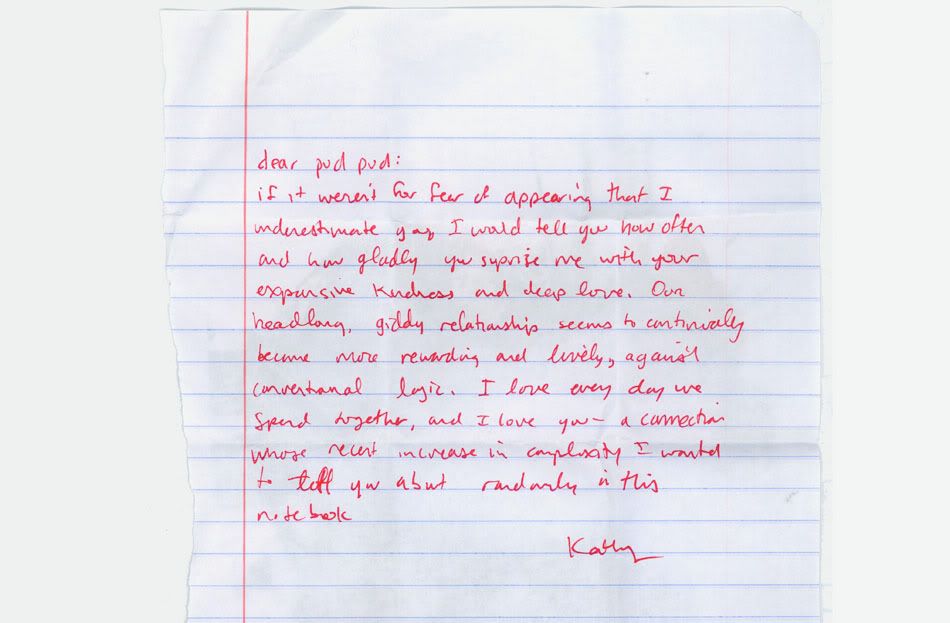 dear pud pud:
if it weren't for fear of appearing that I
underestimate you, I would tell you how often
and how gladly you suprise me with your
expansive kindness and deep love. Our
headlong, giddy relationship seems to continually
become more rewarding and lovely, against
conventional logic. I love every day we
spend together, and I love you – a connection
whose recent increase in complexity I wanted
to tell you about randomly in this
notebook
Kathy